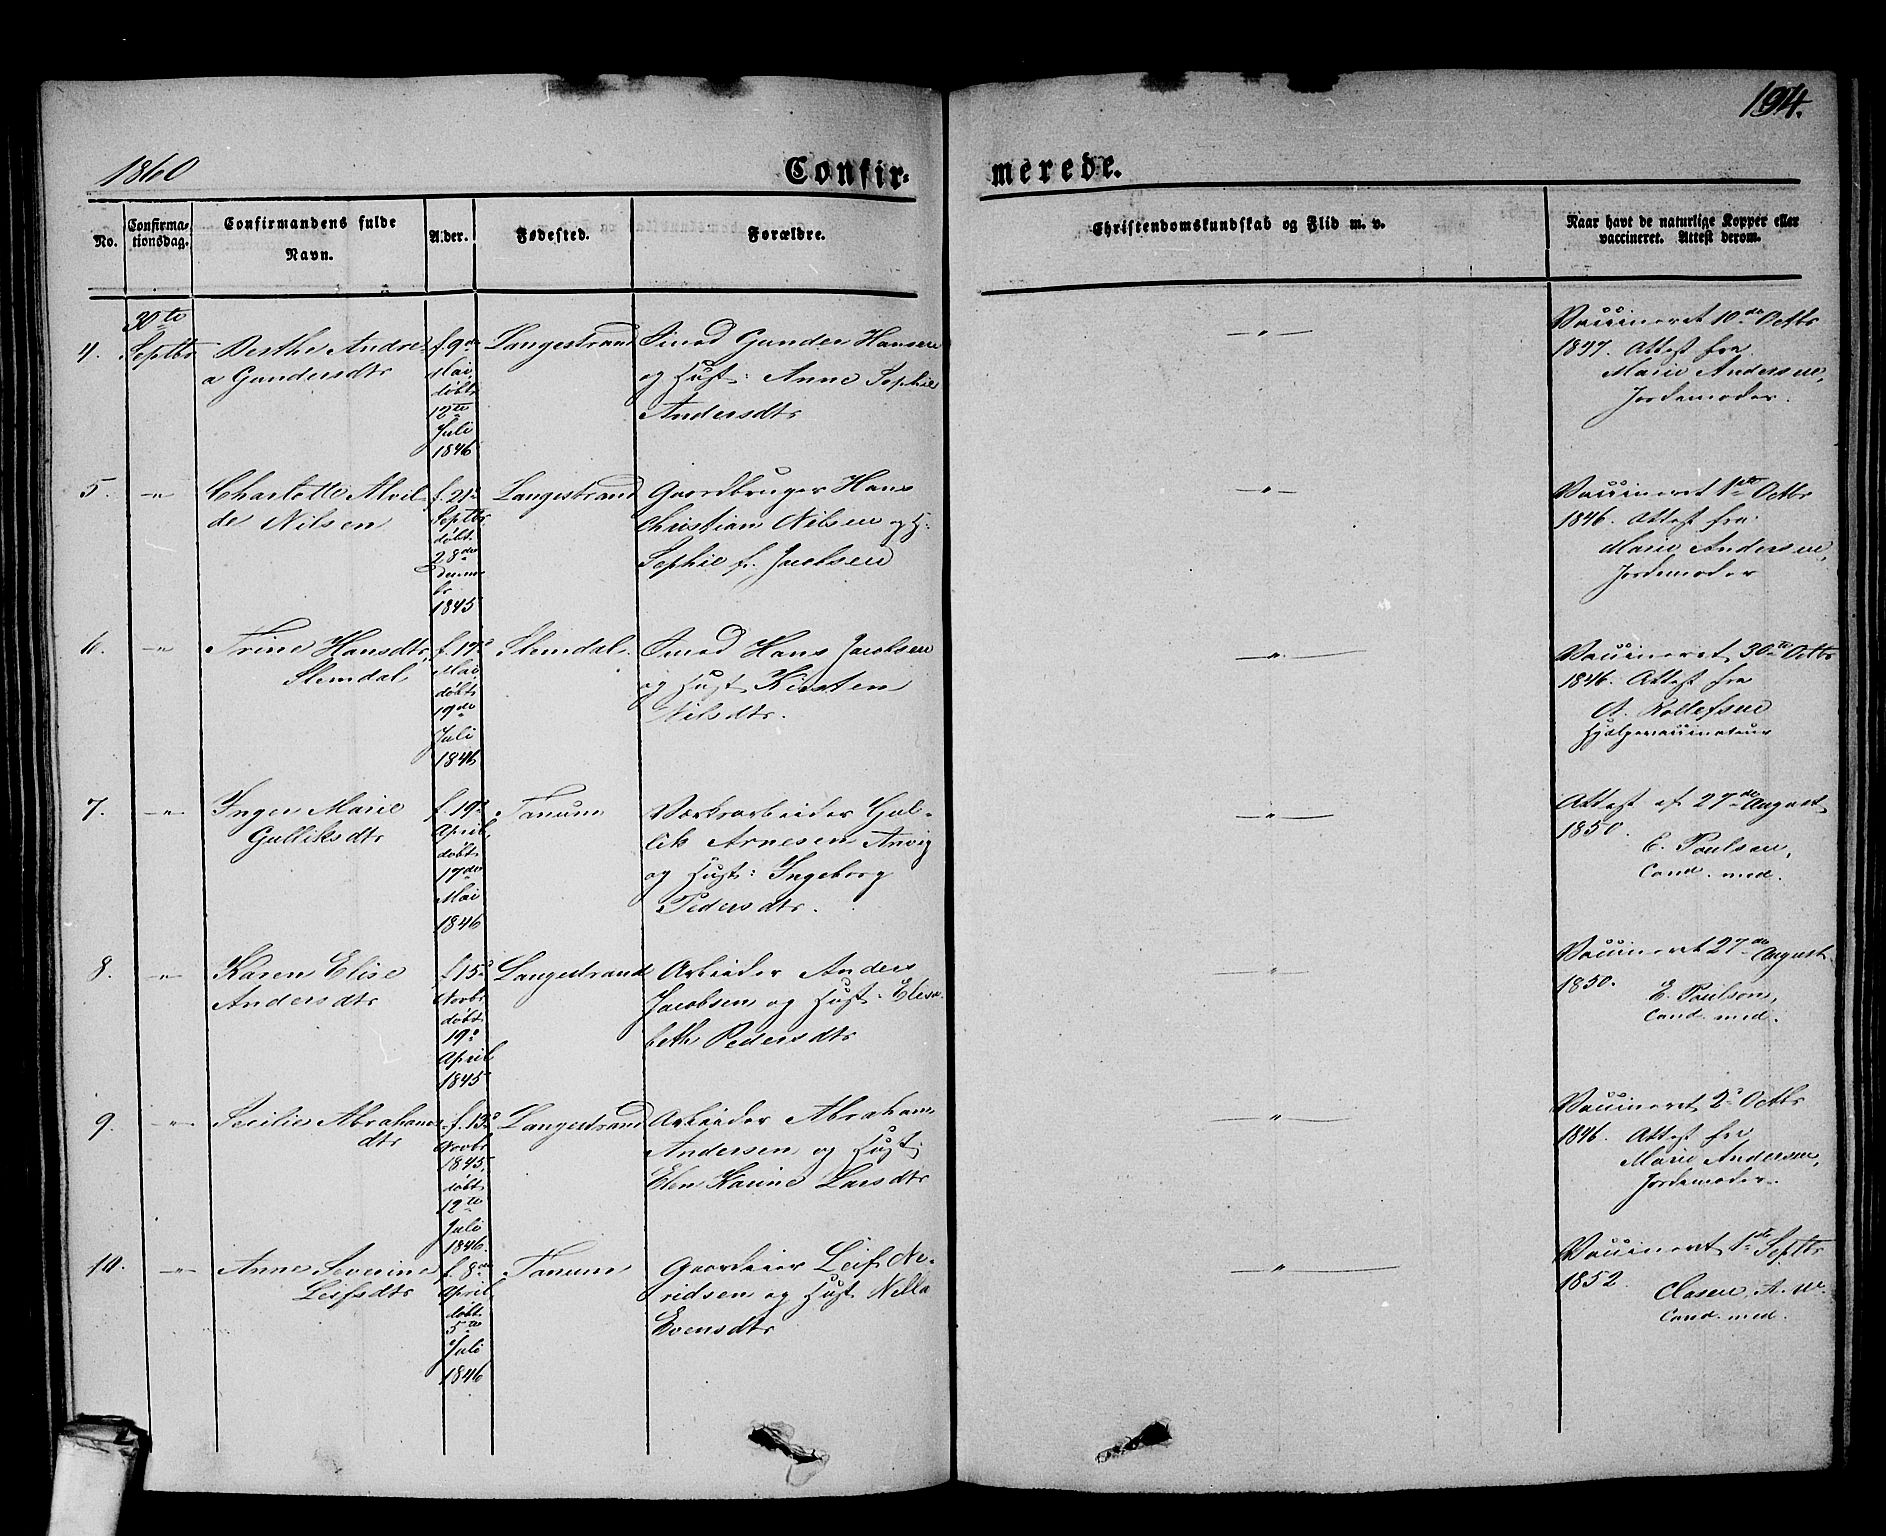 194.
1860
Confir-
merede.
No.
Confirma-
tionsdag.
Confirmandens fulde
Navn.
Alder.
Fødested.
Forældre.
Christendomskundskab og Flid m. v.
Naar havt de naturlige Kopper eller
vaccineret. Attest derom.
4.
30te
Septbr
Berthe Andre-
a Gundersdtr
f. 9de
Mai
døbt
12te
Juli
1846
Langestrand
Smed Gunder Hansen
og Hust: Anne Sophie
Andersdtr
"
Vaccineret 10de Octbr
1847. Attest fra
Marie Andersen,
Jordemoder.
5.
"
Charlotte Alvil-
de Nilsen
f. 21
Septbr
døbt
28de
Decem-
br
1845
Langestrand
Gaardbruger Hans
Christian Nilsen og H:
Sophie f. Jacobsen
"
Vaccineret 1ste Octbr
1846. Attest fra
Marie Andersen,
Jordemoder
6.
"
Trine Hansdtr,
Slemdal
f. 17
Mai
døbt
19de
Juli
1846
Slemdal.
Smed Hans Jacobsen
og Hust Kirsten
Nilsdtr.
"
Vaccineret 30te Octbr
1846. Attest fra
Rollefsen
Hjælpevaccinateur
7.
"
Inger Marie
Gulliksdtr
f. 19
April
døbt
17de
Mai
1846
Tanum
Værksarbeider Gul-
lik Arnesen Anvig
og Hust: Ingeborg
Pedersdtr.
"
Attest af 27de August
1850.
E. Poulsen,
Cand. med.
8.
"
Karen Elise
Andersdtr
f. 15
Novbr
døbt
19
April
1845
Langestrand
Arbeider Anders
Jacobsen og Hust: Elisa-
beth Pedersdtr
"
Vaccineret 27de August
1850.
E. Poulsen,
Cand. med.
9.
"
Secilie Abrahams
dtr
f. 13
Novbr
1845,
døbt
12te
Juli
1846.
Langestrand
Arbeider Abraham
Andersen og Hust:
Elen Karine Larsdtr
"
Vaccineret 2 Octbr
1846. Attest fra
Marie Andersen,
Jordemoder.
10.
"
Anne Severine
Leifsdtr
f. 8de
April
døbt
5te
Juli
1846
Tanum
Gaardeier Leif Ne-
ridsen og Hust Nella
Evensdtr
"
Vaccineret 1ste Septbr
1852.
Clasen,
Cand. med.